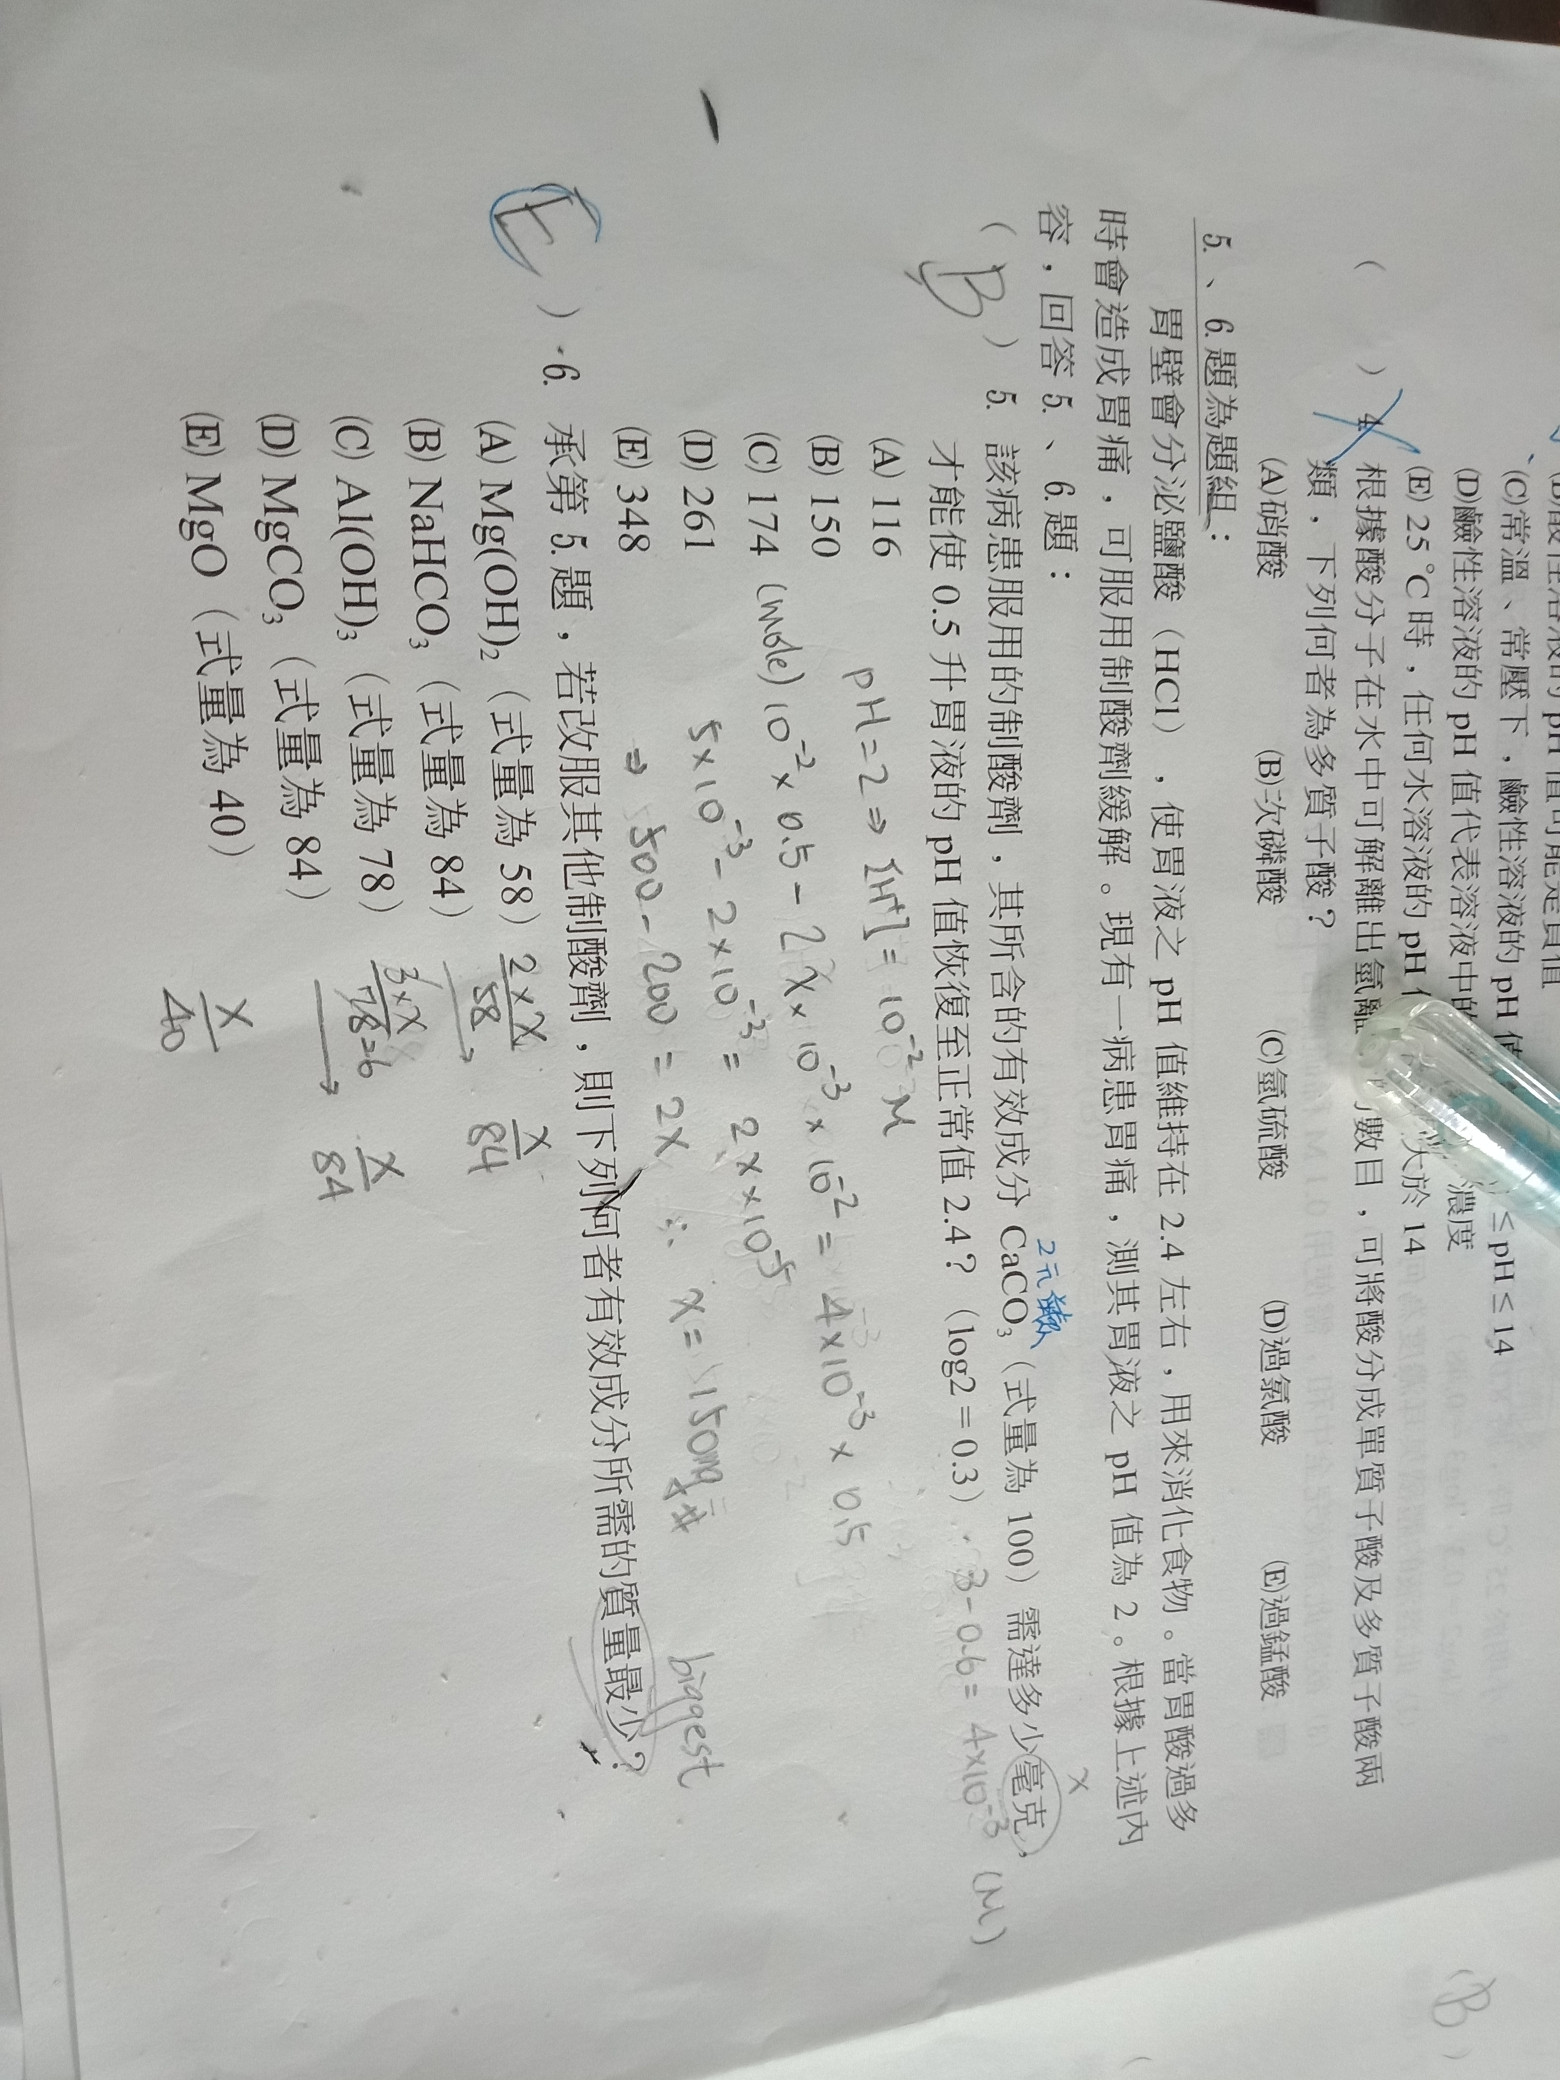 (C)常溫、常壓下，鹼性溶液的 pH 值 ≤ pH ≤ 14
(D)鹼性溶液的 pH 值代表溶液中的 濃度
(E) 25 °C 時，任何水溶液的 pH 大於 14
( ) 4. 根據酸分子在水中可解離出氫離 數目，可將酸分成單質子酸及多質子酸兩
類，下列何者為多質子酸？
(A)硝酸 (B)次磷酸 (C)氫硫酸 (D)過氯酸 (E)過錳酸
5.、6.題為題組：
胃壁會分泌鹽酸（HCl），使胃液之 pH 值維持在 2.4 左右，用來消化食物。當胃酸過多
時會造成胃痛，可服用制酸劑緩解。現有一病患胃痛，測其胃液之 pH 值為 2。根據上述內
容，回答 5.、6.題：
2元鹼
x
( B ) 5. 該病患服用的制酸劑，其所含的有效成分 CaCO₃（式量為 100）需達多少毫克，
才能使 0.5 升胃液的 pH 值恢復至正常值 2.4？（log2 = 0.3） 3-0.6 = 4×10⁻³ (M)
(A) 116 pH=2 ⇒ [H⁺] = 10⁻² M
(B) 150
(C) 174 (mole) 10⁻² × 0.5 - 2x × 10⁻³ × 10⁻² = 4×10⁻³ × 0.5
(D) 261 5×10⁻³ - 2×10⁻³ = 2x×10⁻⁵
(E) 348 ⇒ 500 - 200 = 2x ∴ x = 150mg
biggest
( E ) 6. 承第 5.題，若改服其他制酸劑，則下列何者有效成分所需的質量最少？
(A) Mg(OH)₂（式量為 58） 2×x/58 x/84
(B) NaHCO₃（式量為 84）
(C) Al(OH)₃（式量為 78） 3×x/78=26 x/84
(D) MgCO₃（式量為 84）
(E) MgO（式量為 40） x/40
(B)